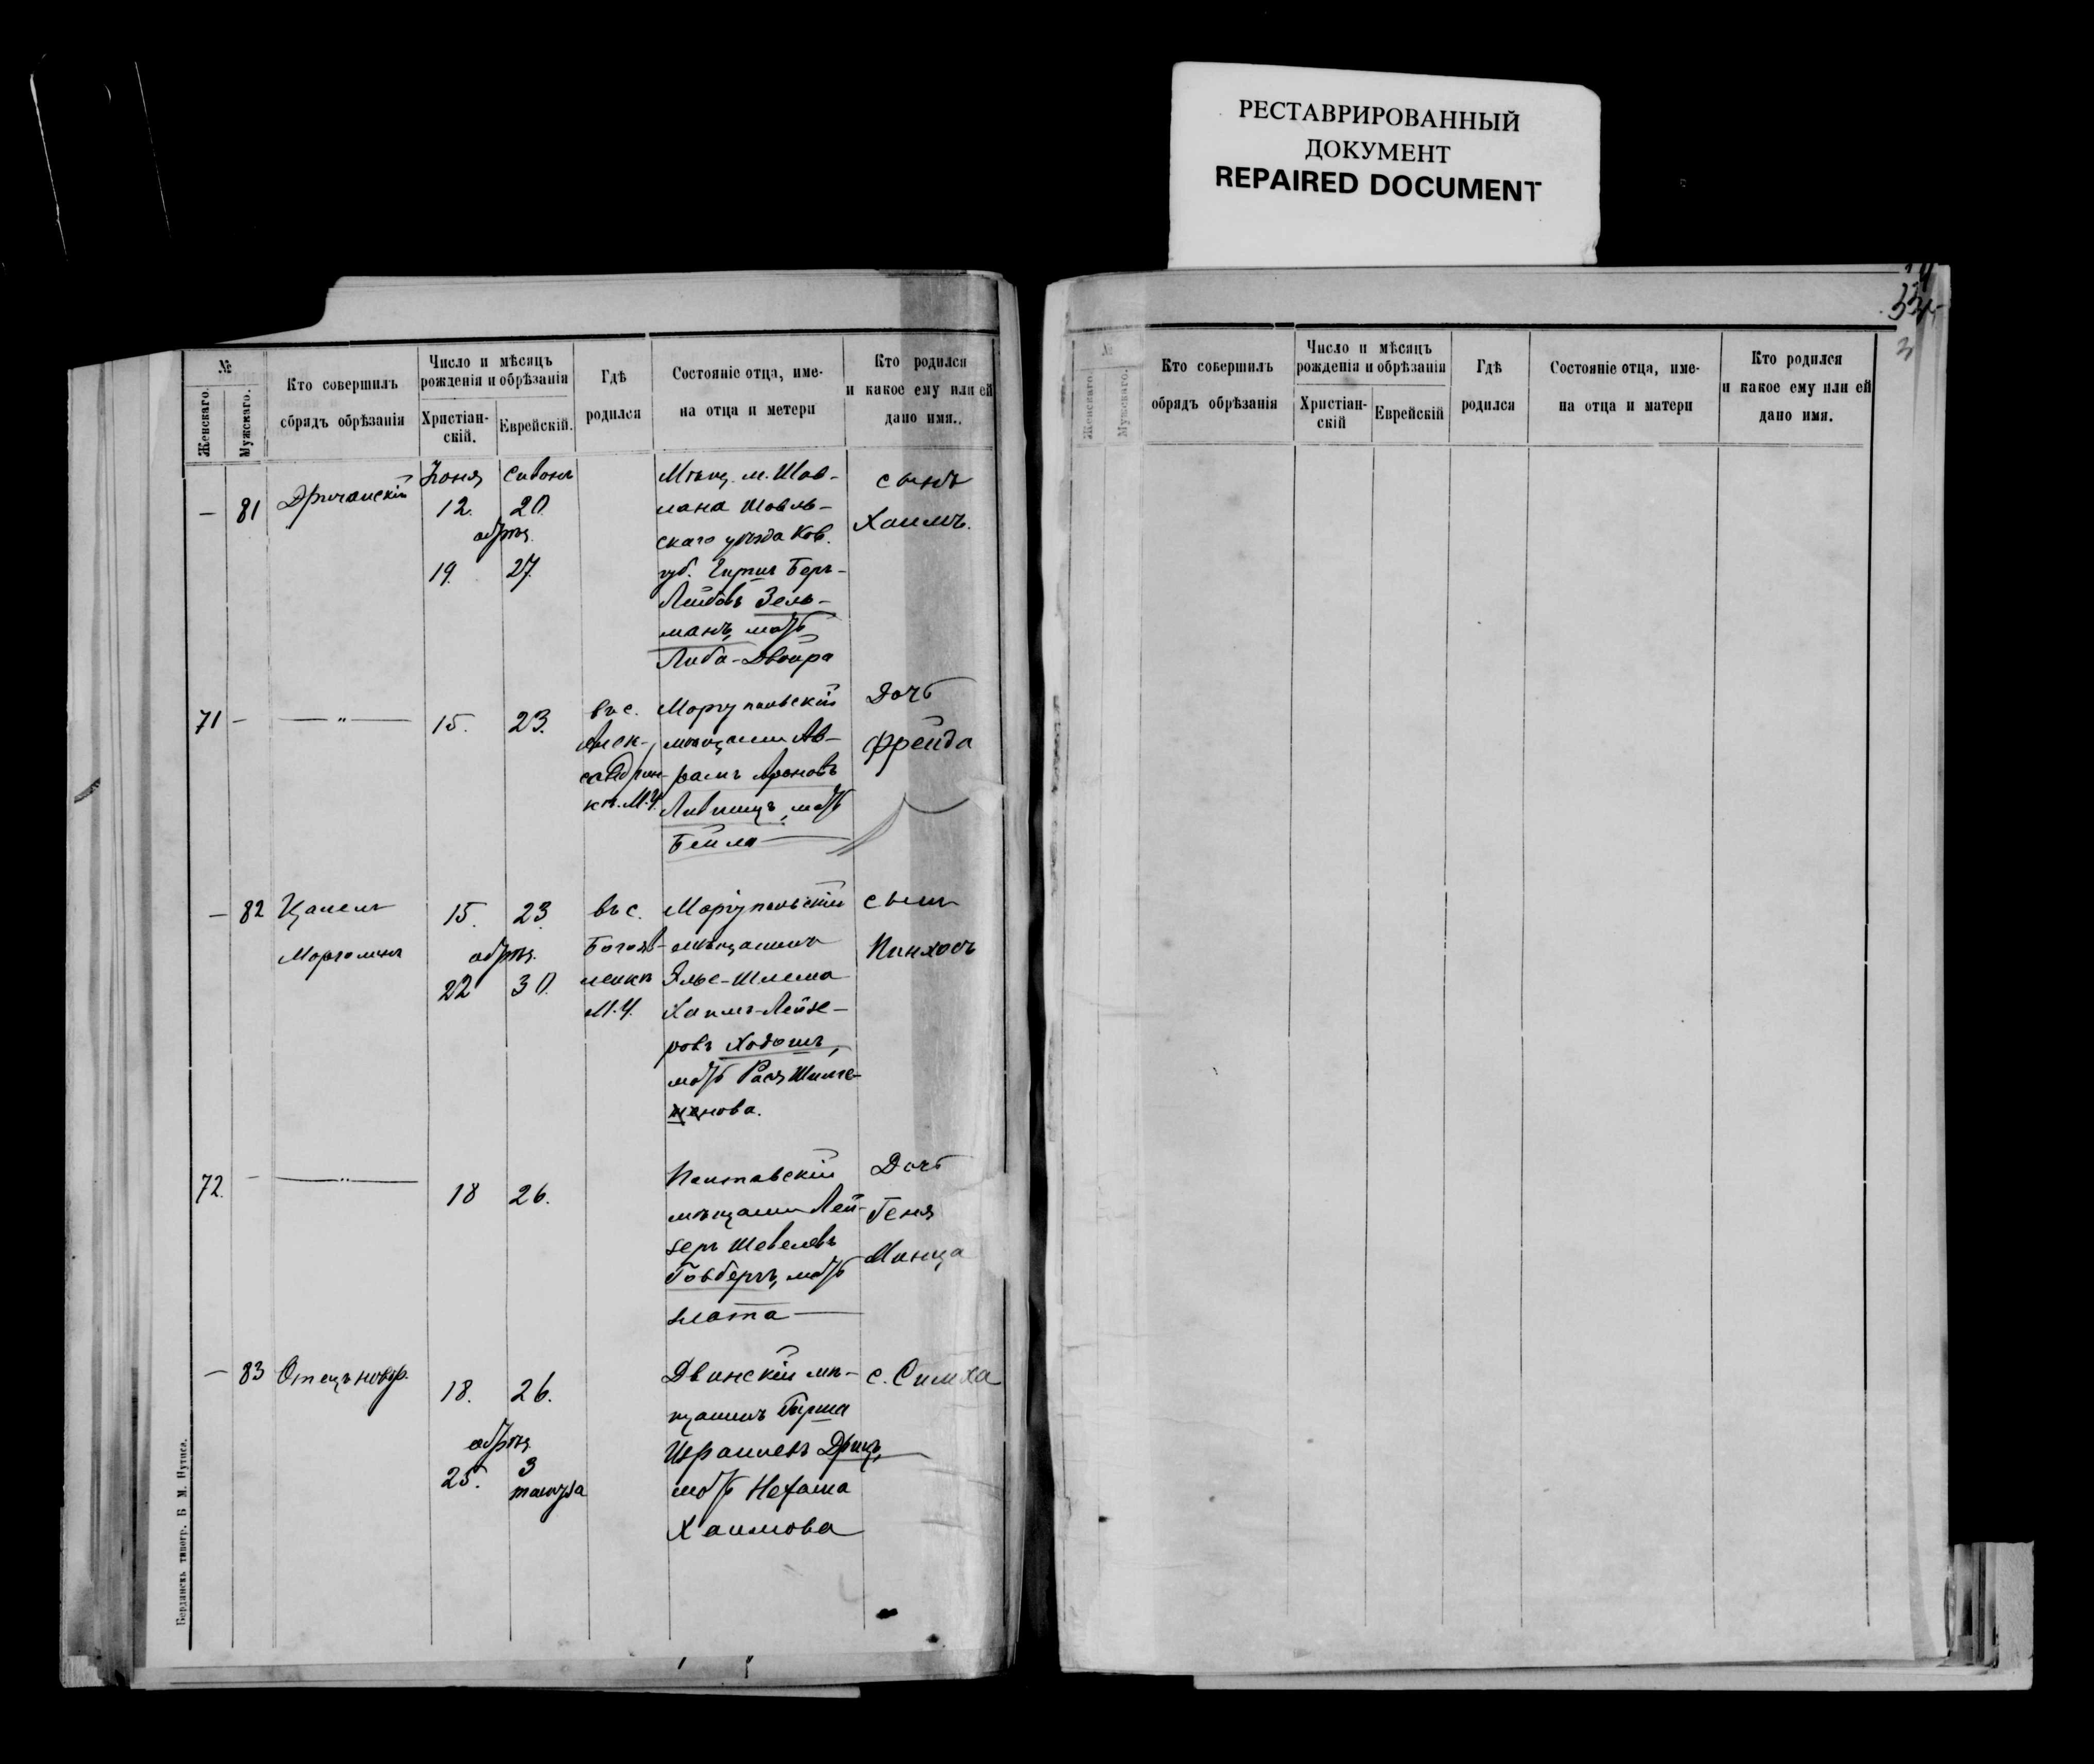 РЕСТАВРИРОВАННЫЙ
ДОКУМЕНТ
REPAIRED DOCUMENT
№
Женскаго.
Мужскаго.
Кто совершилъ
обрядъ обрѣзанія
Число и мѣсяцъ
рожденія и обрѣзанія
Христіан-
скій.
Еврейскій.
Гдѣ
родился
Состояніе отца, име-
на отца и метери
Кто родился
и какое ему или ей
дано имя..
— 81
Юня Сивонъ
12. 20.
обрѣз.
19. 27.
Мѣщ. м. Шав-
лана Шавль-
скаго уѣзда Ков.
губ. Гиршъ Беръ-
Лейбовъ Зель-
манъ, мать
Либа-Двойра
сынъ
Хаимъ.
71 —
— " —
15. 23.
въ с.
Алек-
сандров-
кѣ. М.У.
Маріупольскій
мѣщанин Ав-
рамъ Ароновъ
Лившицъ, мать
Бейла —
Дочь
Фрейда
— 82
Цалель
Марголинъ
15. 23
обрѣз.
22 30.
въ с.
Богояв-
ленкѣ
М.У.
Маріупольскій
мѣщанинъ
Элье-Шлема
Хаимъ-Лейзе-
ровъ Ходошъ,
мать Рася Шлиме-
нова.
сынъ
Пинхосъ
72. —
— " —
18 26.
Полтавскій
мѣщанин Лей-
зеръ Шевелевъ
мать
Злата —
Дочь
Геня
— 83
Отецъ новор.
18. 26.
обрѣз.
25. 3
тамуза
Двинскій мѣ-
щанинъ Гирша
Израилевъ Дрицъ,
мать Нехама
Хаимова
с. Симха
Бердянскъ типогр. Б М. Нутиса.
№
Женскаго
Мужскаго.
Кто совершилъ
обрядъ обрѣзанія
Число и мѣсяцъ
рожденія и обрѣзанія
Христіан-
скій
Еврейскій
Гдѣ
родился
Состояніе отца, име-
на отца и матери
Кто родился
и какое ему или ей
дано имя.